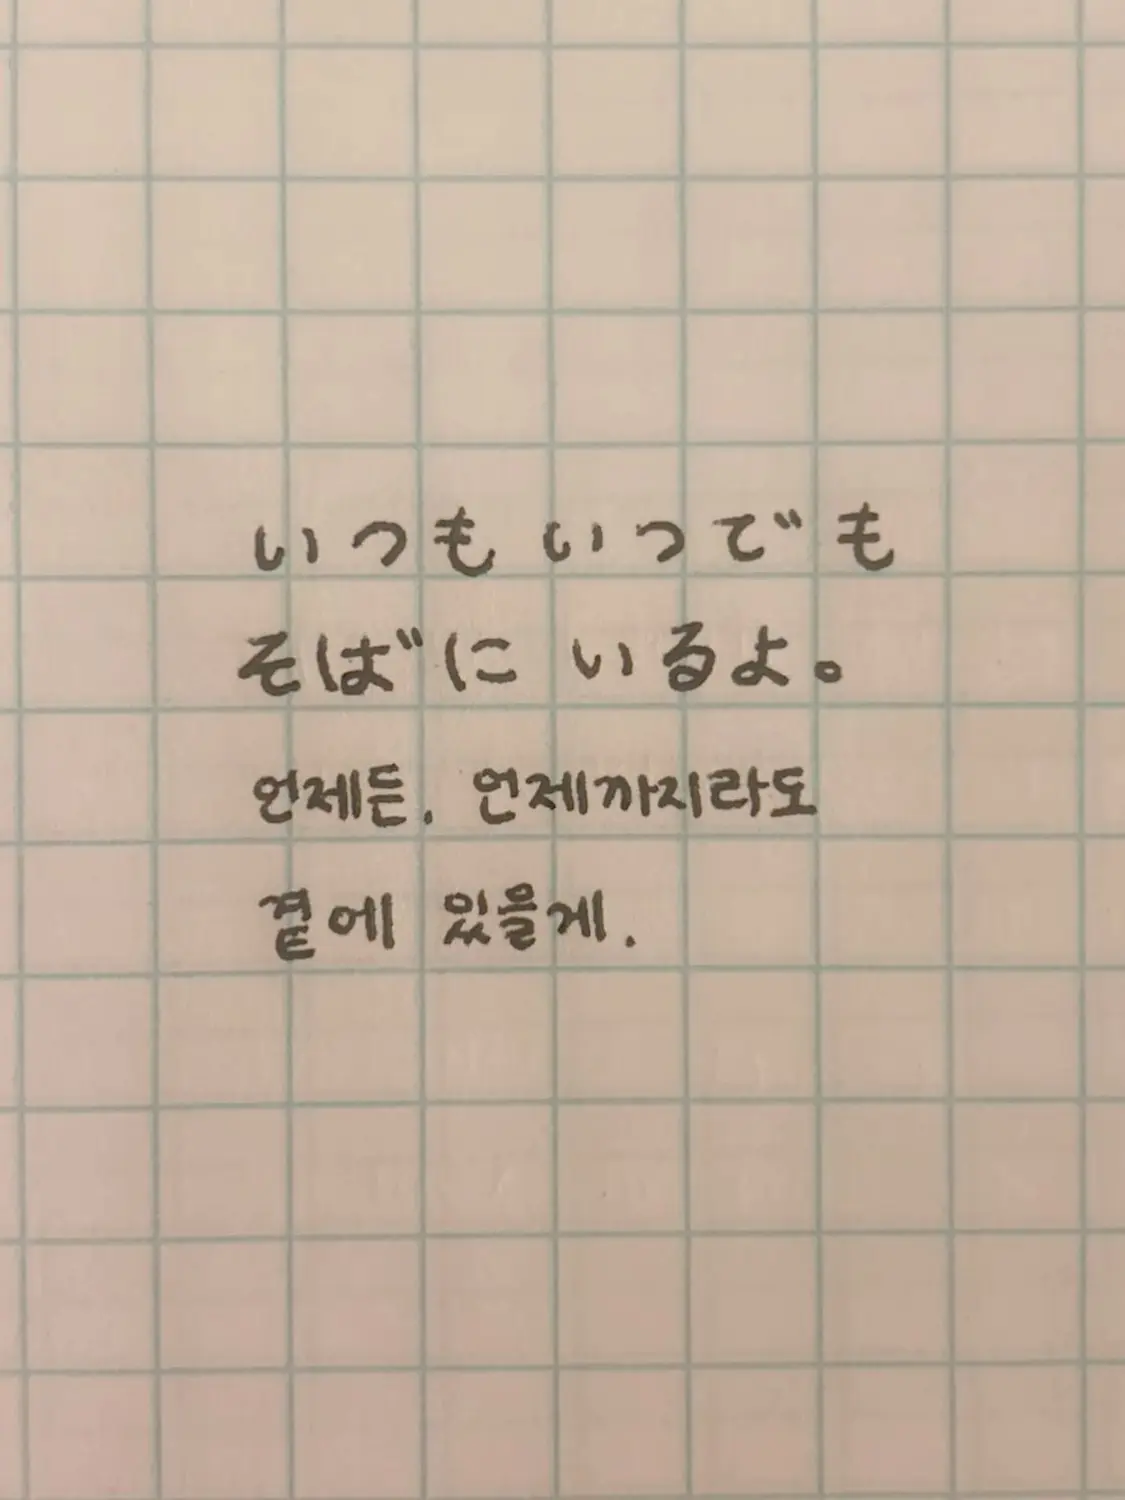 いつもいつでも
そばに いるよ。
언제든. 언제까지라도
곁에 있을게.